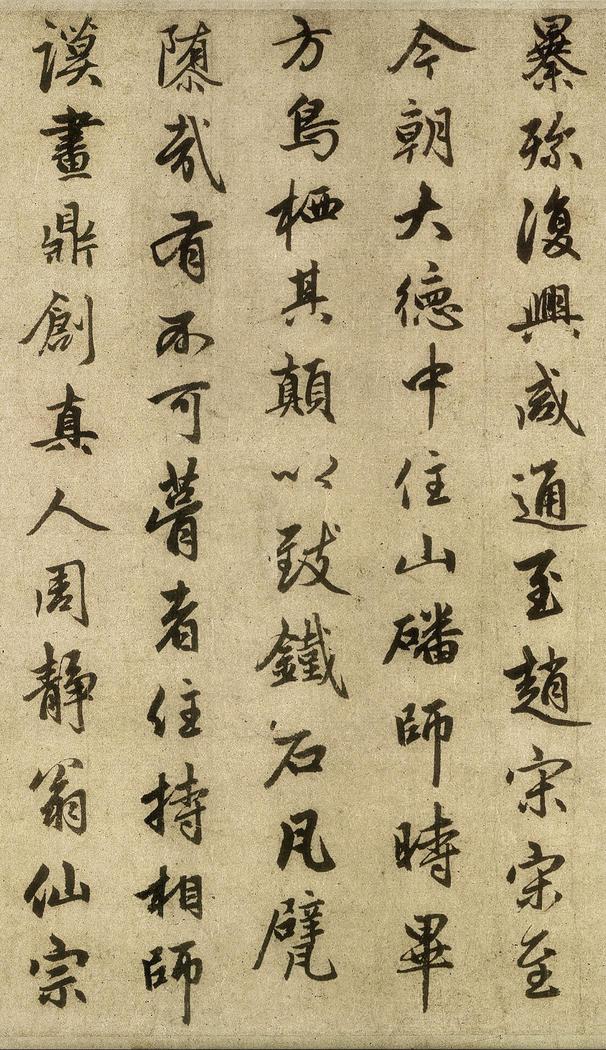 暴殄復興咸通至趙宋宋至
今朝大德中住山磻師時畢
方鳥栖其顛以致鐵石凡甓
哉有不可瞢者住持相師
謨畫鼎創真人周靜翁仙宗